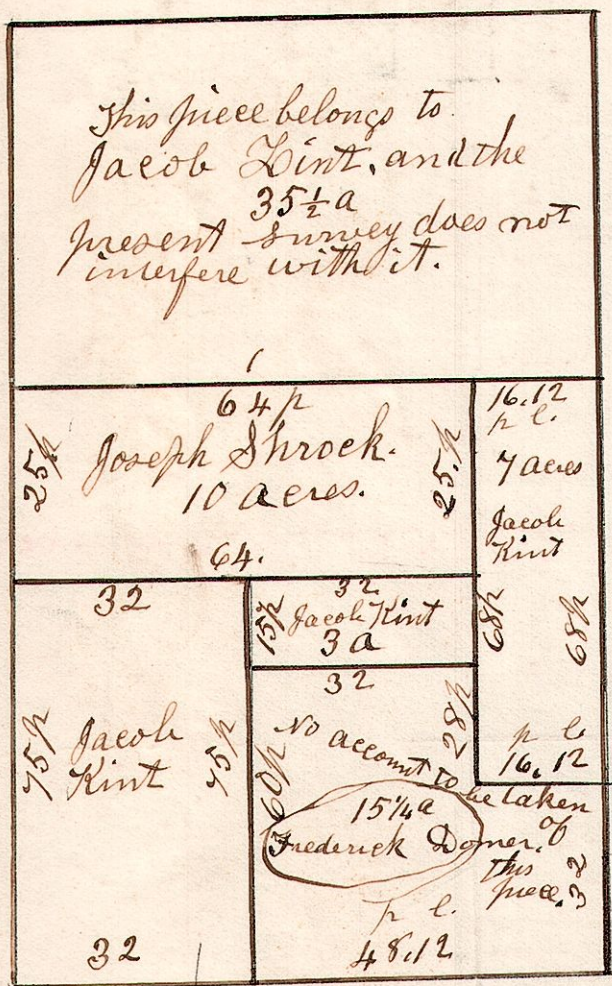 This piece belongs to
Jacob Kint, and the
35½ a
present survey does not
interfere with it.
64 p
25 p
Joseph Shrock.
10 acres.
25. p
64.
16.12
p l.
7 acres
Jacob
Kint
68 p
68 p
p l.
16.12
32
75 p
Jacob
Kint
75 p
32
32
15 p
Jacob Kint
3 a
32
28 p
60 p
No account to be taken
of
this
piece.
15¼ a
Frederick Domer.
32
p l.
48.12